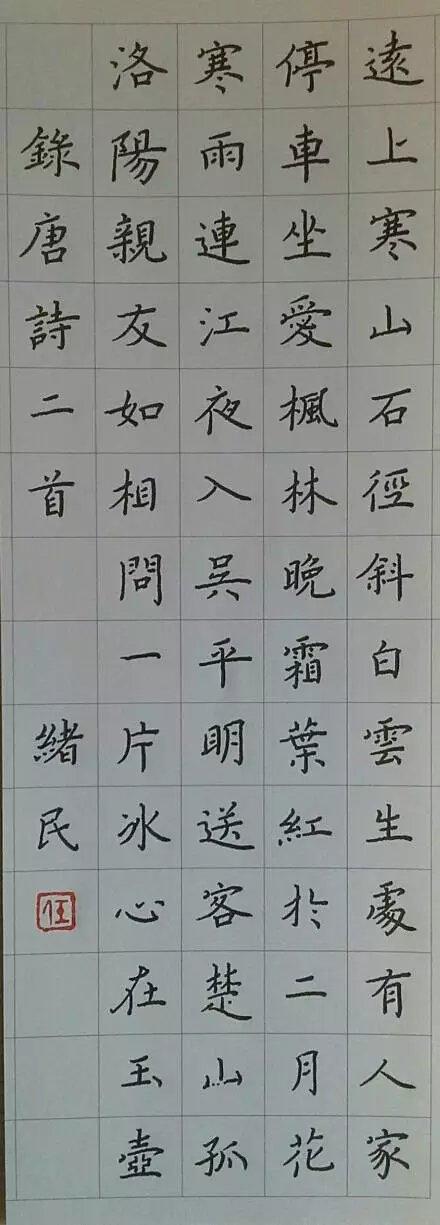 遠上寒山石徑斜白雲生處有人家
停車坐愛楓林晚霜葉紅於二月花
寒雨連江夜入吳平明送客楚山孤
洛陽親友如相問一片冰心在玉壺
錄唐詩二首 緒民
任